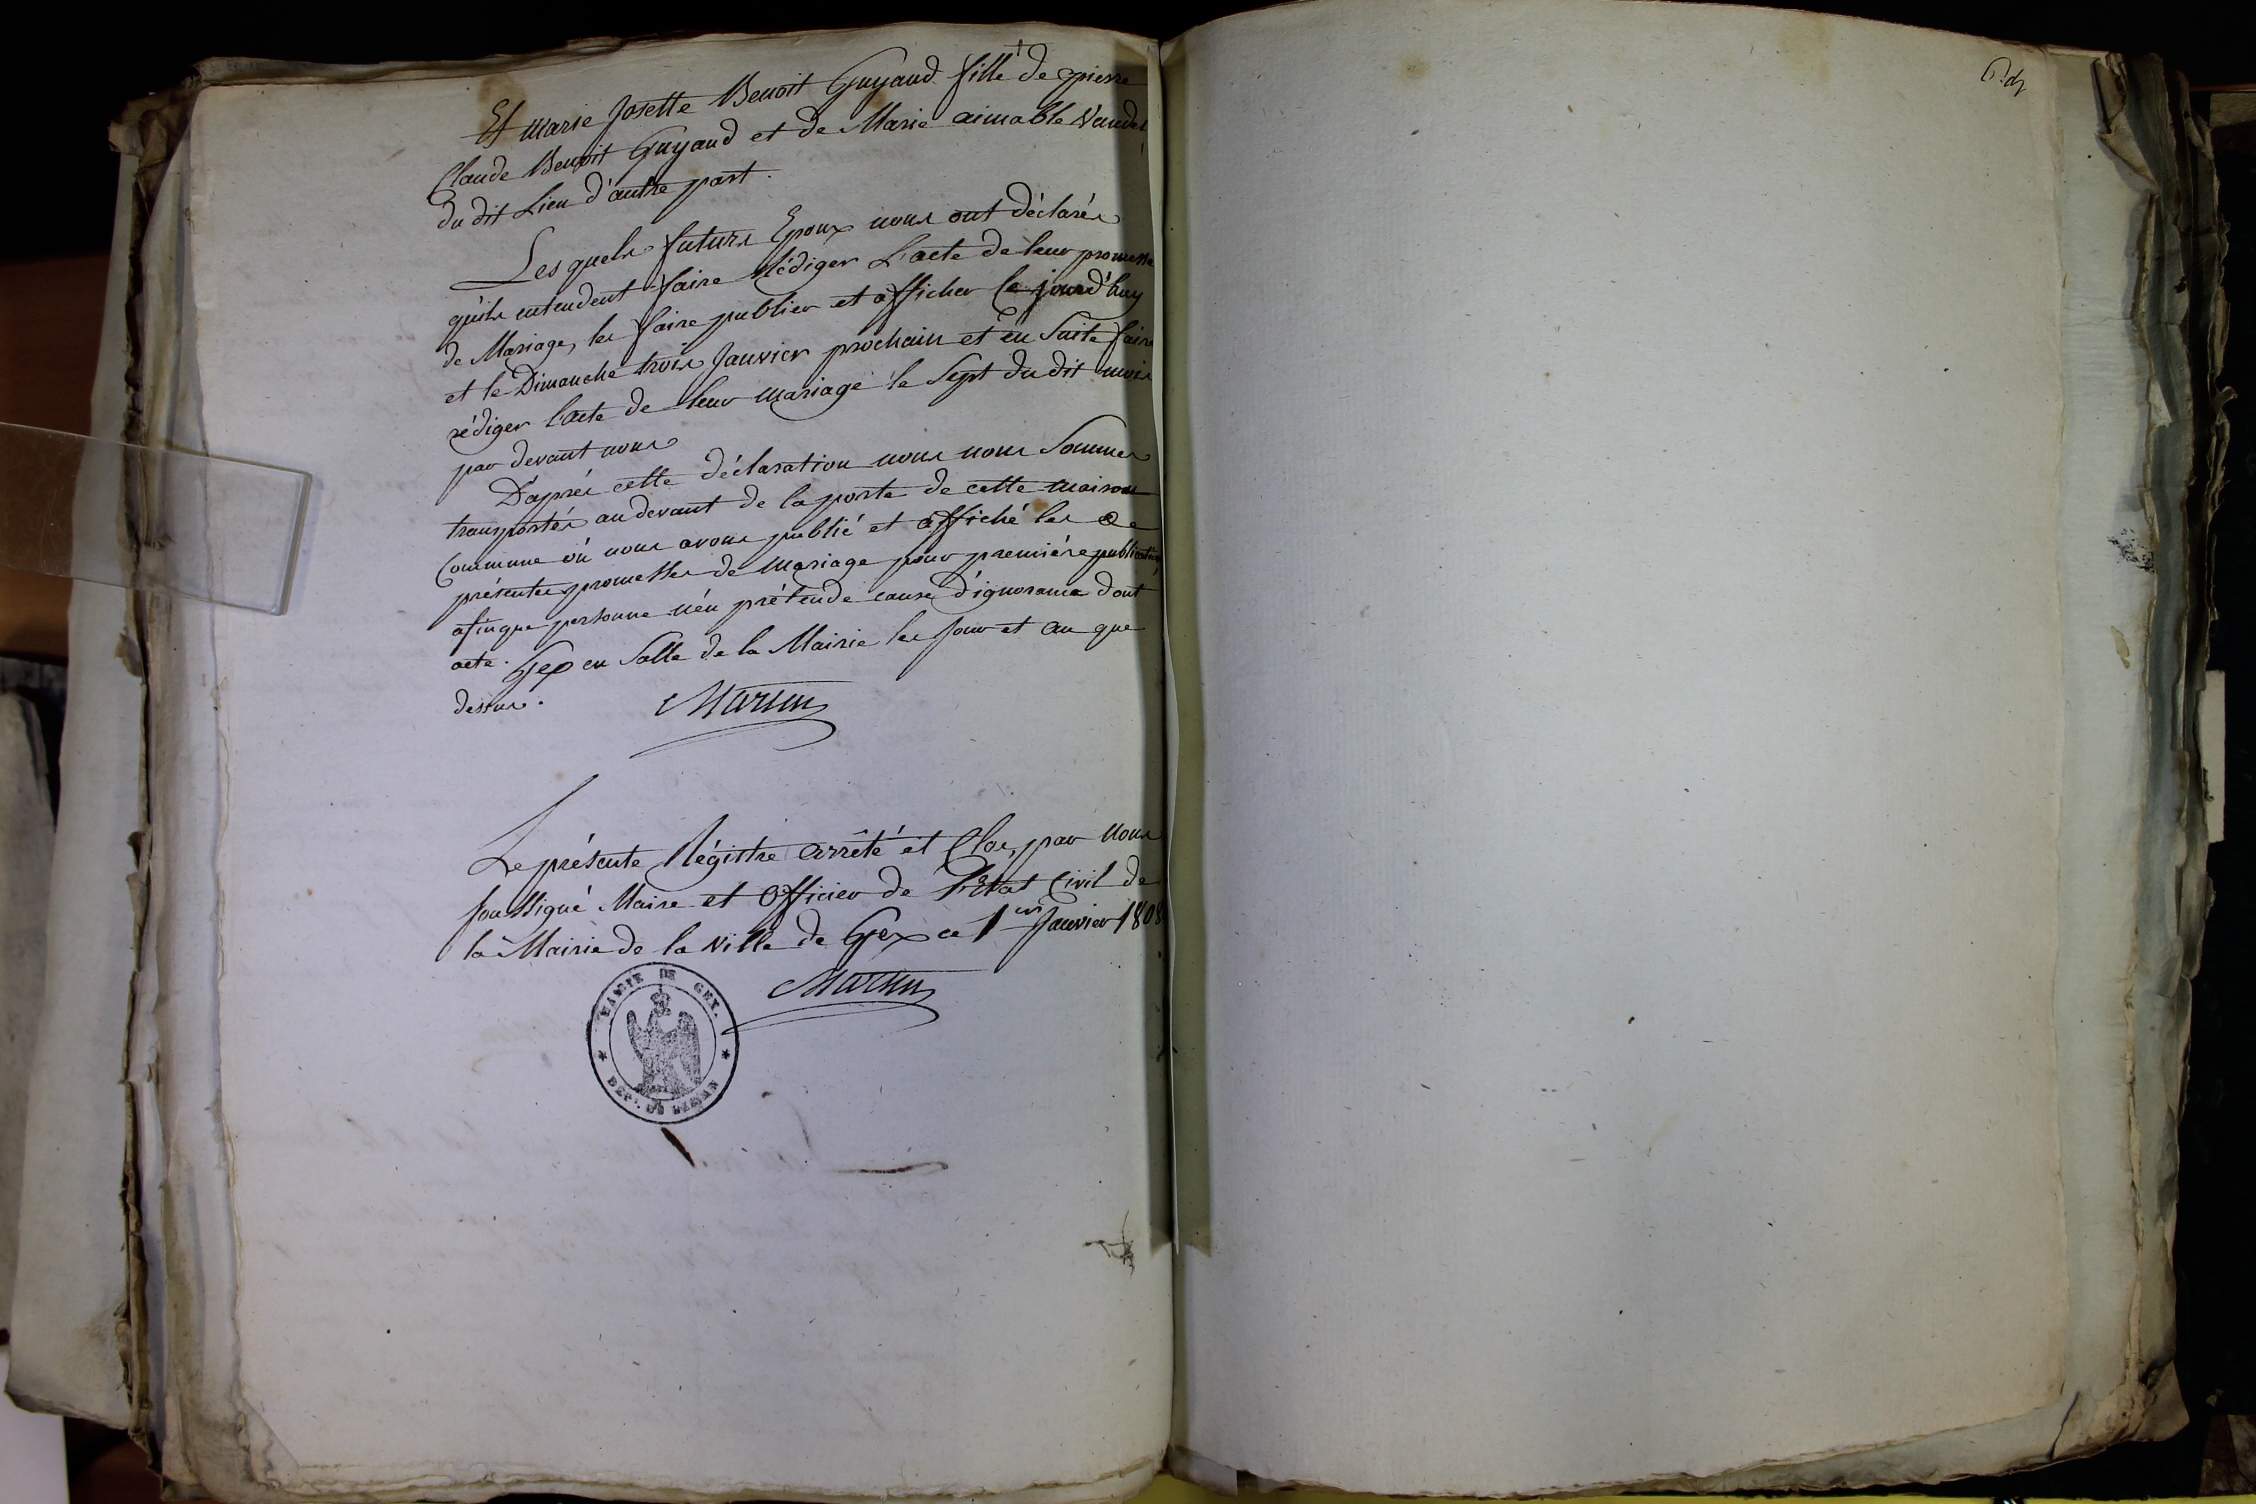 Et marie Josette Benoit Guyaud fille de pierre
Claude Benoit Guyaud et de Marie aimable Vandel
du dit Lieu d'autre part.
Les quels futurs Epoux nous ont déclarés
qu'ils entendent faire rédiger L'acte de leur promesse
de Mariage, les faire publier et afficher Ce jourd'huy
et le Dimanche trois Janvier prochain et en Suite faire
rédiger l'acte de leur mariage le Sept du dit mois
par devant nous
D'après cette déclaration nous nous Sommes
transportés au devant de la porte de cette maison
Commune où nous avons publié et affiché les
présentes promesses de mariage pour première publication,
afin que personne n'en prétende cause d'ignorance dont
acte. Gex en Salle de la Mairie les jour et an que
dessus.
Martin
Le présente Régistre arrêté et Clos, par Nous
soussigné Maire et Officier de l'Etat Civil de
la Mairie de la ville de Gex ce 1er Janvier 1808
Martin
MAIRIE DE GEX.
DEPT. DU LEMAN